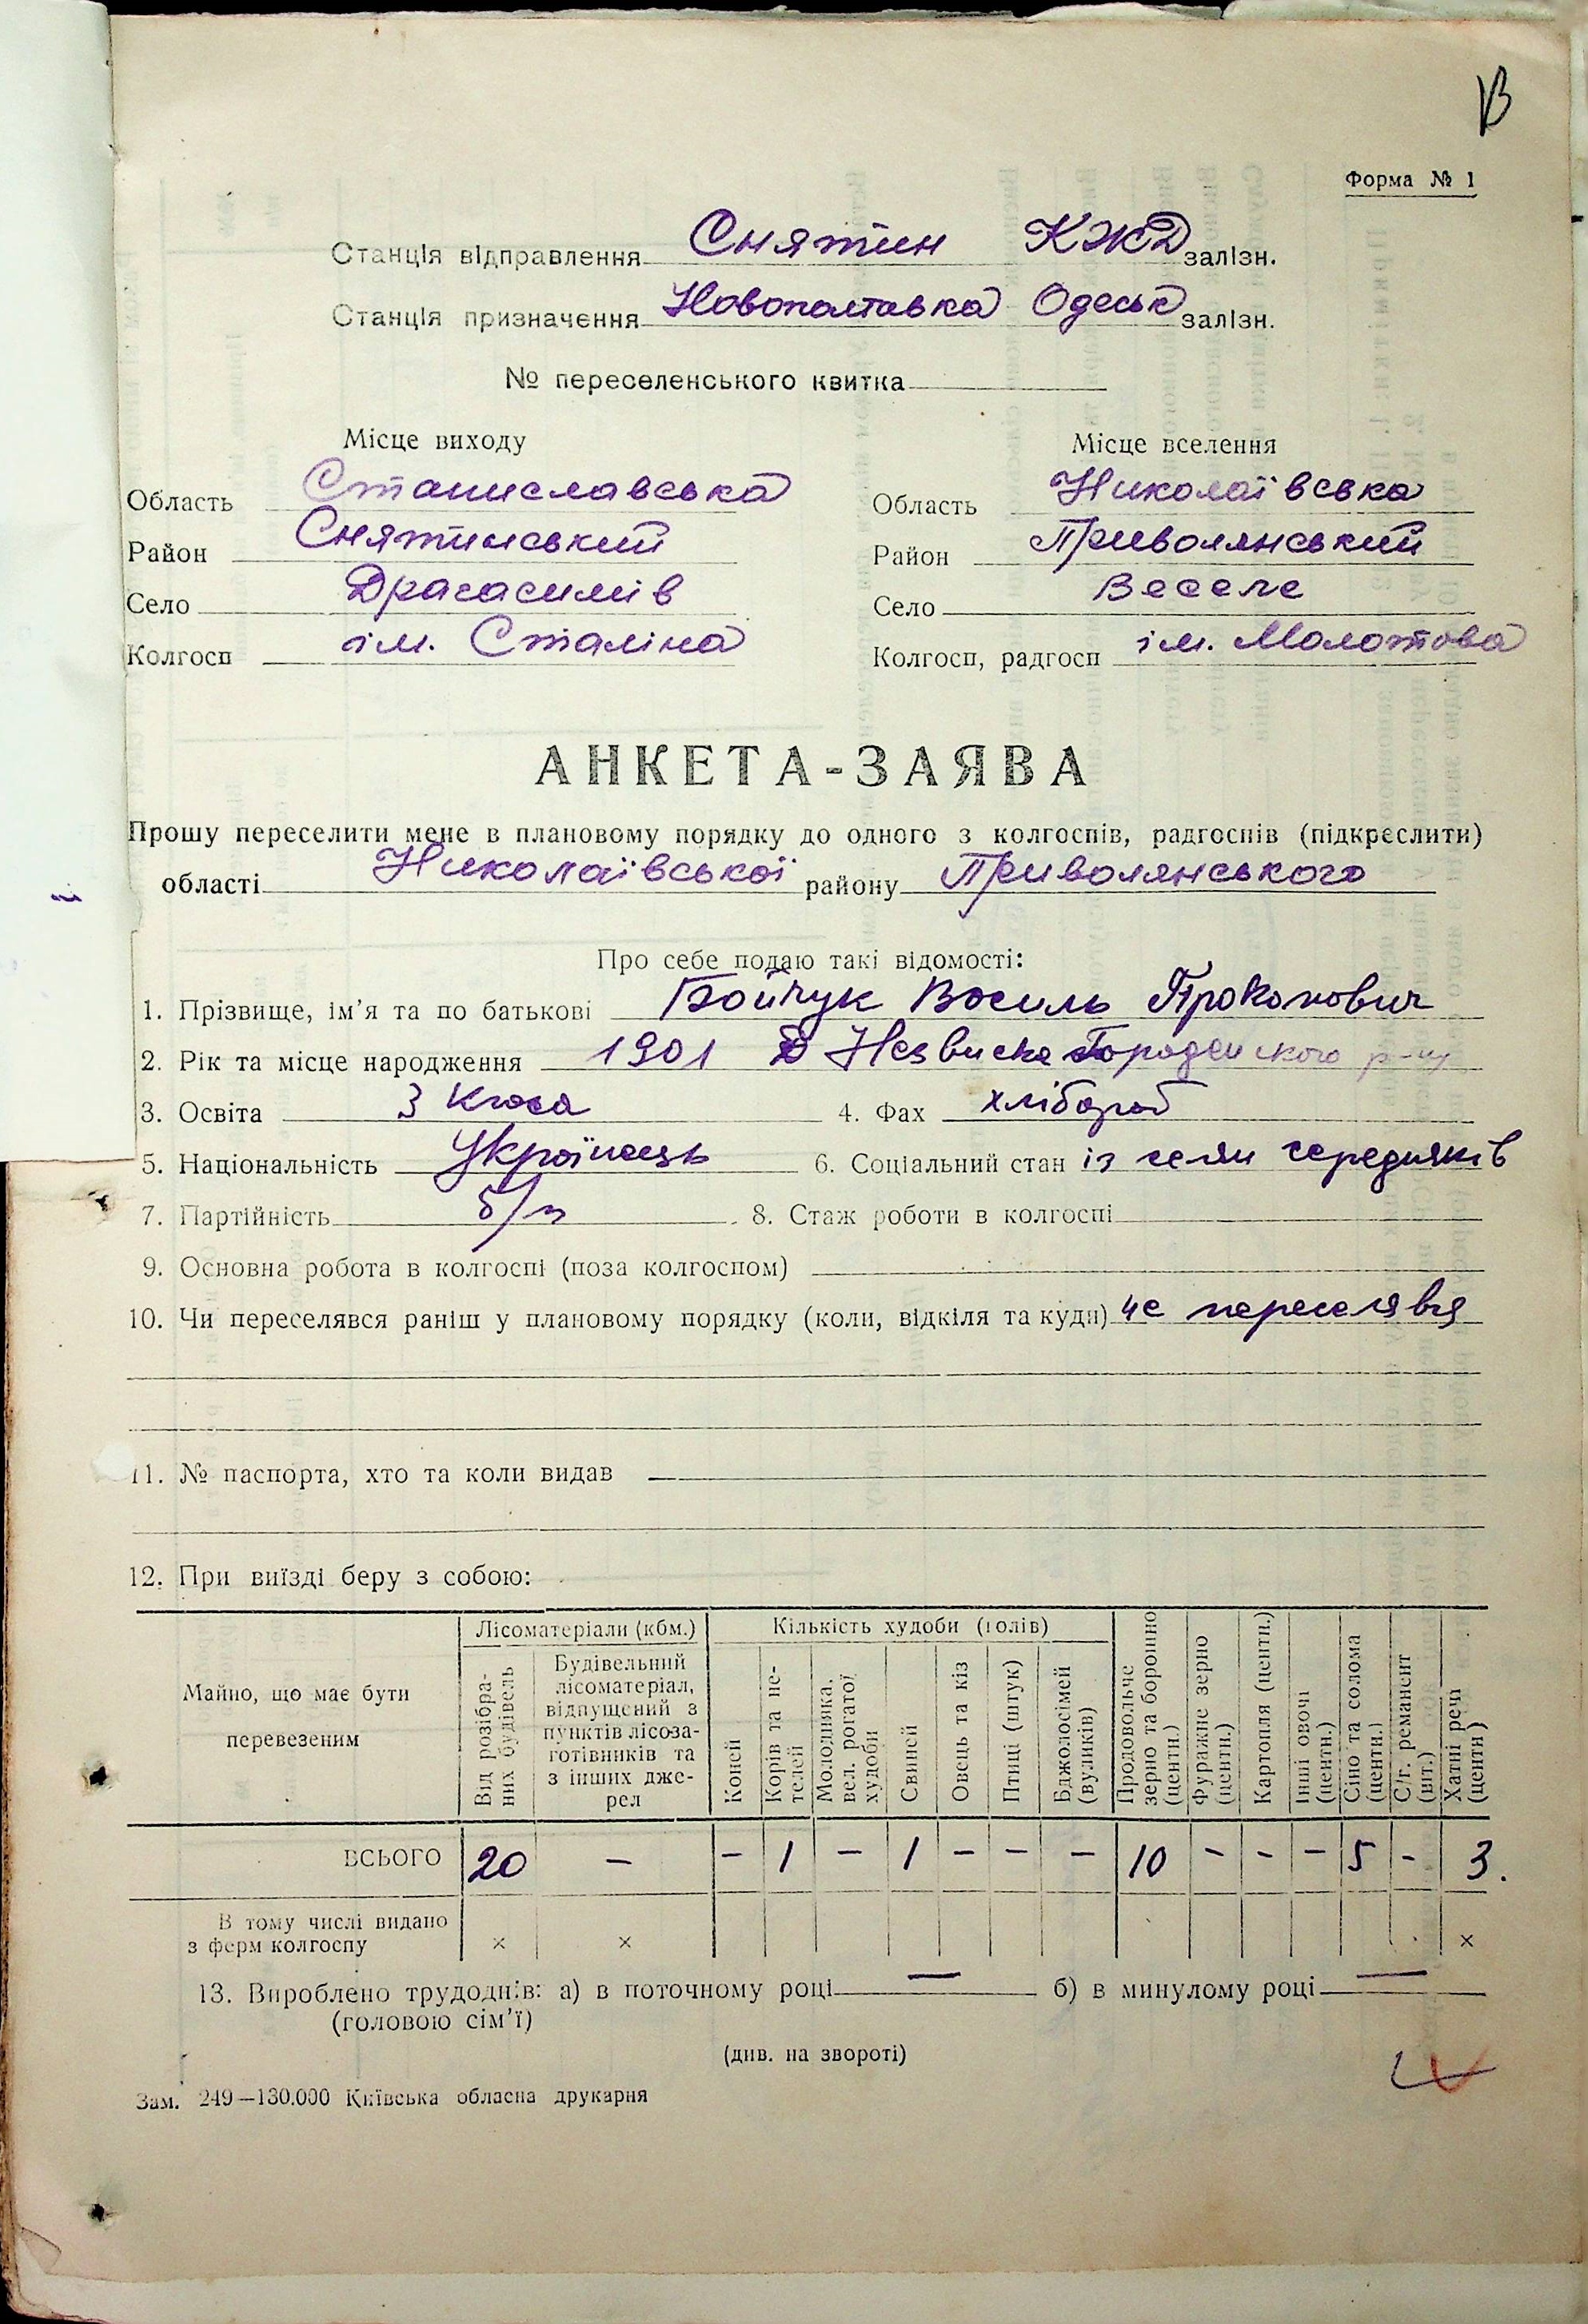 В
Форма № 1
Станція відправлення Снятин КЖД залізн.
Станція призначення Новополтавка Одеськ залізн.
№ переселенського квитка
Місце виходу
Область Станиславська
Район Снятинський
Село Драгасимів
Колгосп ім. Сталіна
Місце вселення
Область Николаївська
Район Привольянський
Село Веселе
Колгосп, радгосп ім. Молотова
АНКЕТА-ЗАЯВА
Прошу переселити мене в плановому порядку до одного з колгоспів, радгоспів (підкреслити)
області Николаївської району Привольянського
Про себе подаю такі відомості:
1. Прізвище, ім'я та по батькові Бойчук Василь Прокопович
2. Рік та місце народження 1901 Незвиска Городенского р-ну
3. Освіта 3 класа 4. Фах хлібороб
5. Національність Українець 6. Соціальний стан із селян середняків
7. Партійність б/п 8. Стаж роботи в колгоспі
9. Основна робота в колгоспі (поза колгоспом)
10. Чи переселявся раніш у плановому порядку (коли, відкіля та куди) не переселявся
11. № паспорта, хто та коли видав
12. При виїзді беру з собою:
Майно, що має бути перевезеним
Лісоматеріали (кбм.)
Від розібраних будівель
Будівельний лісоматеріал, відпущений з пунктів лісозаготівників та з інших джерел
Кількість худоби (голів)
Коней
Корів та нетелей
Молодняка. вел. рогатої худоби
Свиней
Овець та кіз
Птиці (штук)
Бджолосімей (вуликів)
Продовольче зерно та борошно (центн.)
Фуражне зерно (центн.)
Картопля (центн.)
Інші овочі (центн.)
Сіно та солома (центн.)
С/г. реманент (шт.)
Хатні речі (центн)
ВСЬОГО 20 – – 1 – 1 – – – 10 – – – 5 – 3.
В тому числі видано з ферм колгоспу × × ×
13. Вироблено трудоднів: а) в поточному році — б) в минулому році —
(головою сім'ї)
(див. на звороті)
Зам. 249—130.000 Київська обласна друкарня